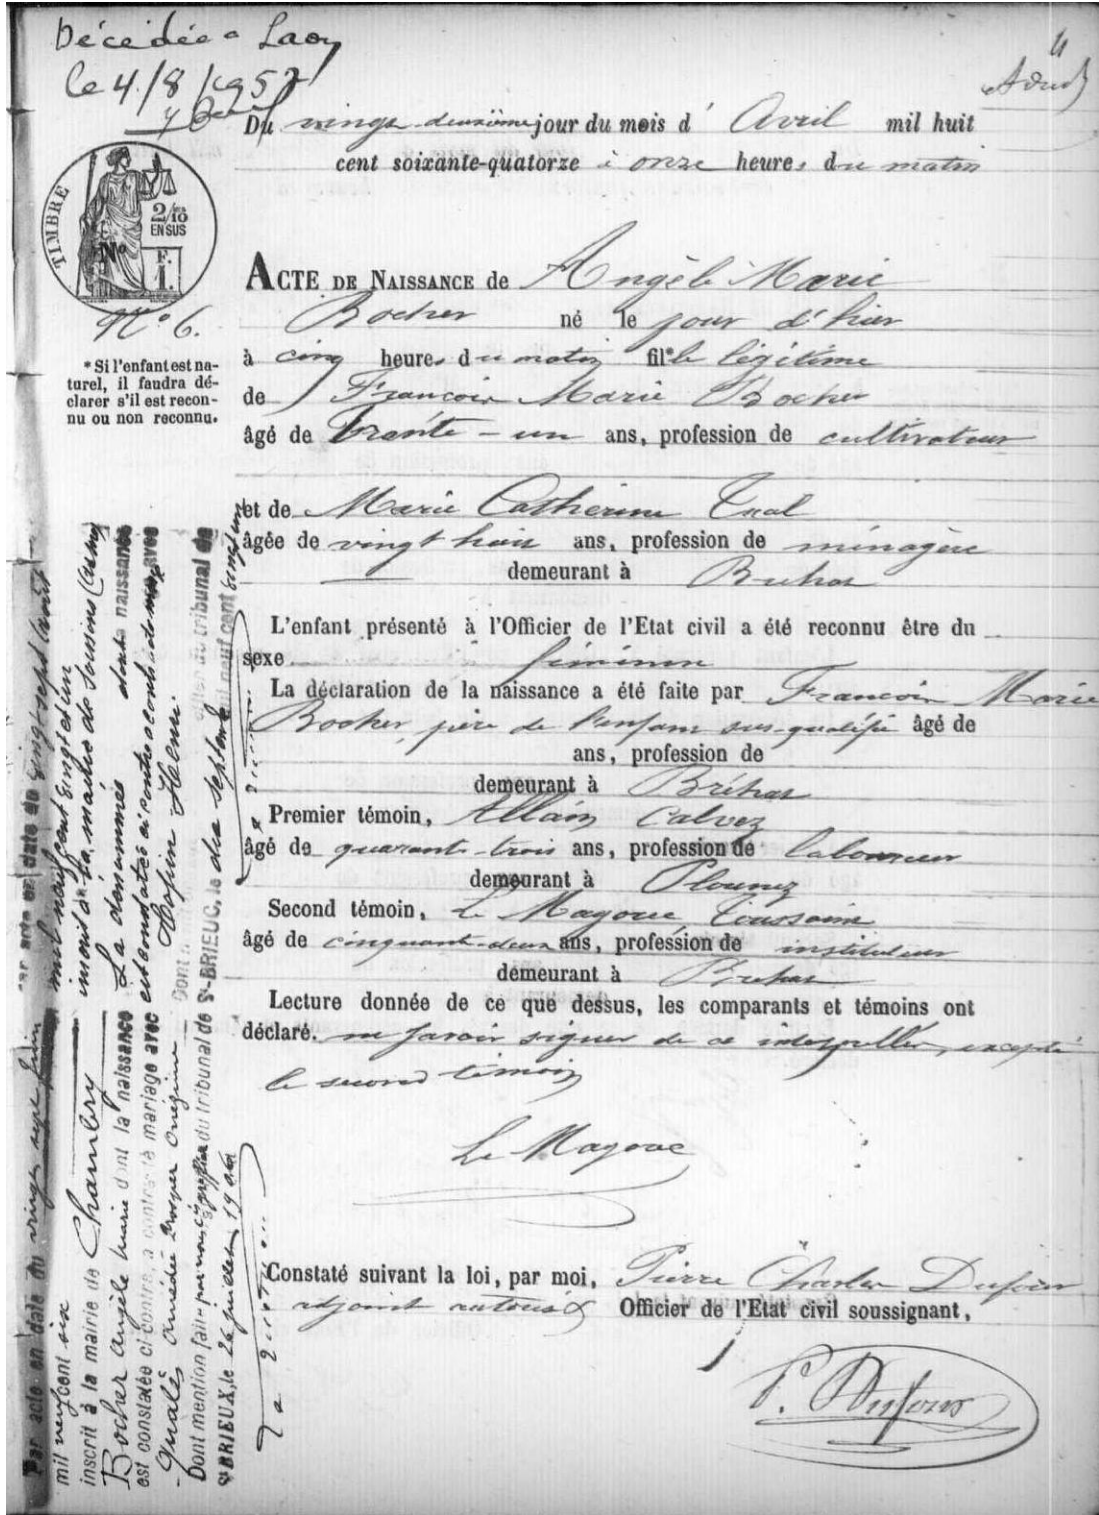 Décédée à Laon
le 4/8/1957
4
Du vingt-deuxième jour du mois d' Avril mil huit
cent soixante-quatorze à onze heures du matin
TIMBRE
2/10
EN SUS
F.
1.
N° 6.
ACTE DE NAISSANCE de Angèle Marie
Bocher né le jour d'hier
à cinq heures du matin fille légitime
* Si l'enfant est na-
turel, il faudra dé-
clarer s'il est recon-
nu ou non reconnu.
de François Marie Bocher
âgé de trente-un ans, profession de cultivateur
et de Marie Catherine Tual
âgée de vingt huit ans, profession de ménagère
demeurant à Bréhat
L'enfant présenté à l'Officier de l'Etat civil a été reconnu être du
sexe féminin
La déclaration de la naissance a été faite par François Marie
Bocher, père de l'enfant sus-qualifié âgé de
ans, profession de
demeurant à Bréhat
Premier témoin, Allain Calvez
âgé de quarante-trois ans, profession de laboureur
demeurant à Plounez
Second témoin, Le Magoux Toussaint
âgé de cinquante-deux ans, profession de instituteur
demeurant à Bréhat
Lecture donnée de ce que dessus, les comparants et témoins ont
déclaré ne savoir signer de ce interpellés, excepté
le second témoin
Constaté suivant la loi, par moi, Pierre Charles Dufour
adjoint autorisé Officier de l'Etat civil soussigné,
P. Dufour
Par acte en date du vingt sept juin
mil neuf cent six
inscrit à la mairie de Chambry
Bocher Angèle Marie dont la naissance
est constatée ci-contre, a contracté mariage avec
Amédée Prosper
Dont mention faite par nous, greffier du tribunal de
St-BRIEUX, le 26 juillet 1906
Par acte en date du vingt sept août
mil neuf cent vingt et un
inscrit à la mairie de Soissons
La dénommée dont la naissance
est constatée ci-contre a contracté mariage avec
Henri.
St-BRIEUC, le dix septembre mil neuf cent vingt un